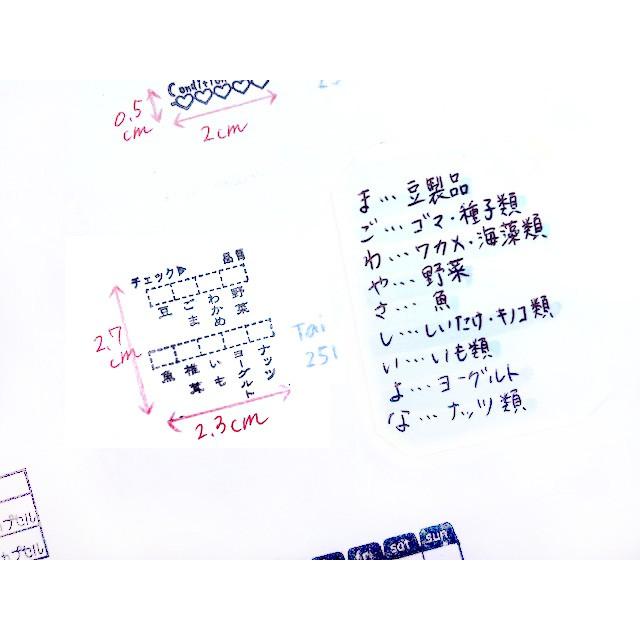 Condition
0.5 cm
2cm
チェック▶ 品目
豆 ごま わかめ 野菜
魚 椎茸 いも ヨーグルト ナッツ
2.7 cm
2.3cm
Tai
251
ま…豆製品
ご…ゴマ・種子類
わ…ワカメ・海藻類
や…野菜
さ…魚
し…しいたけ・キノコ類
い…いも類
よ…ヨーグルト
な…ナッツ類
プセル
カプセル
fri sat sun